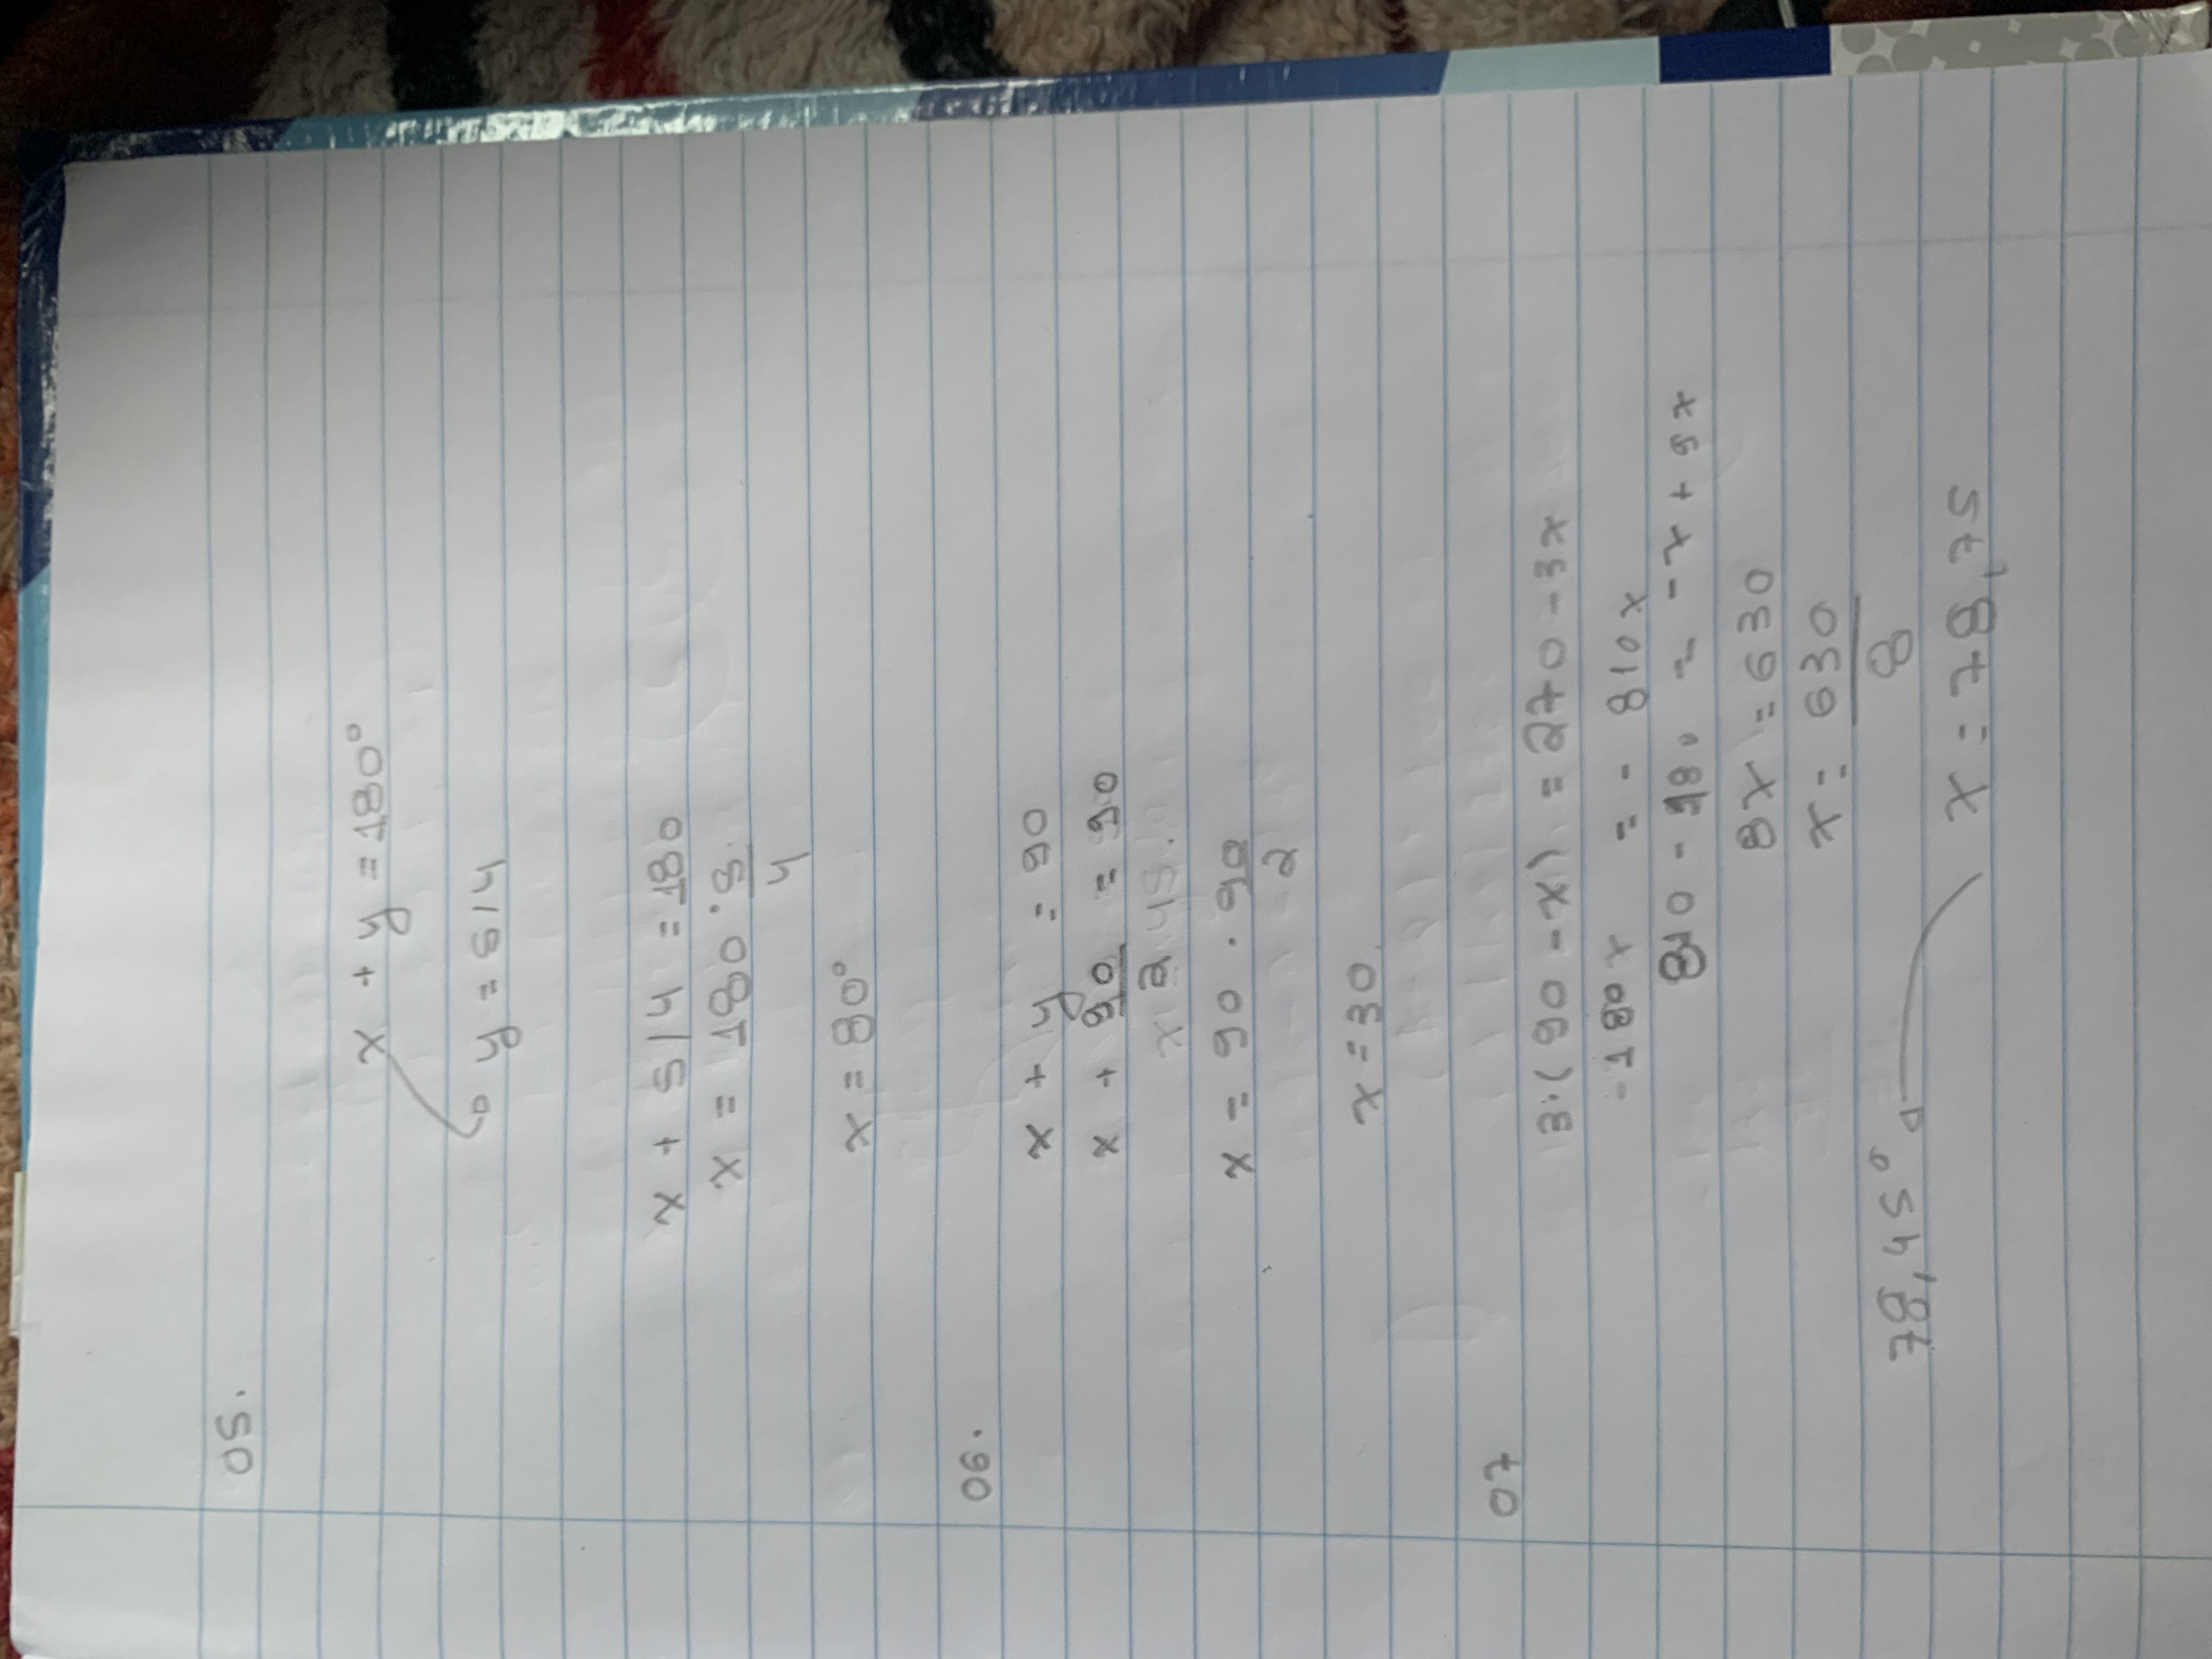 05.
x + y = 180°
y = 5/4
x + 5/4 = 180
x = 180 · 5
4
x = 80°
06.
x + y = 90
x + 90 = 90
2
x = 90 · 90
2
x = 30.
07
3·(90 - x) = 270 - 3x
- 180x = - 810x
810 - 180 = - x + 9x
8x = 630
x = 630
8
78,45°
x = 78,75